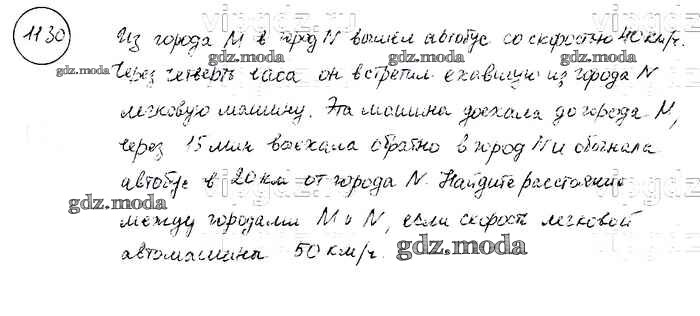 1130
Из города М в город N вышел автобус со скоростью 40 км/ч.
Через четверть часа он встретил ехавшую из города N
легковую машину. Эта машина доехала до города М,
через 15 мин выехала обратно в город N и обогнала
автобус в 20 км от города N. Найдите расстояние
между городами М и N, если скорость легковой
автомашины 50 км/ч.
gdz.moda
gdz.moda
gdz.moda
gdz.moda
gdz.moda
gdz.moda
gdz.moda